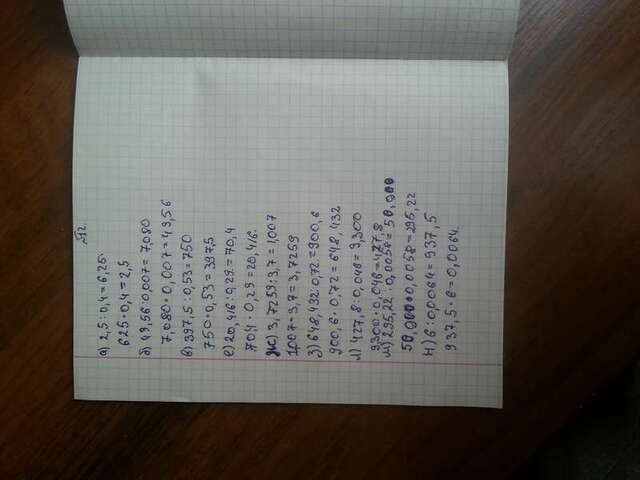 №12.
а) 2,5 : 0,4 = 6,25.
625 · 0,4 = 2,5
б) 49,56 : 0,007 = 7,080
7,080 · 0,007 = 49,56
в) 397,5 : 0,53 = 750
750 · 0,53 = 397,5
е) 20,416 : 0,29 = 70,4
70,4 · 0,29 = 20,416.
ж) 3,7259 : 3,7 = 1,007
1,007 · 3,7 = 3,7259
з) 648,432 : 0,72 = 900,6
900,6 · 0,72 = 648,432
л) 427,8 : 0,046 = 9,300
9,300 · 0,046 = 427,8
м) 295,22 : 0,0058 = 50,900
50,900 · 0,0058 = 295,22
н) 6 : 0,0064 = 937,5
937,5 · 6 = 0,0064.